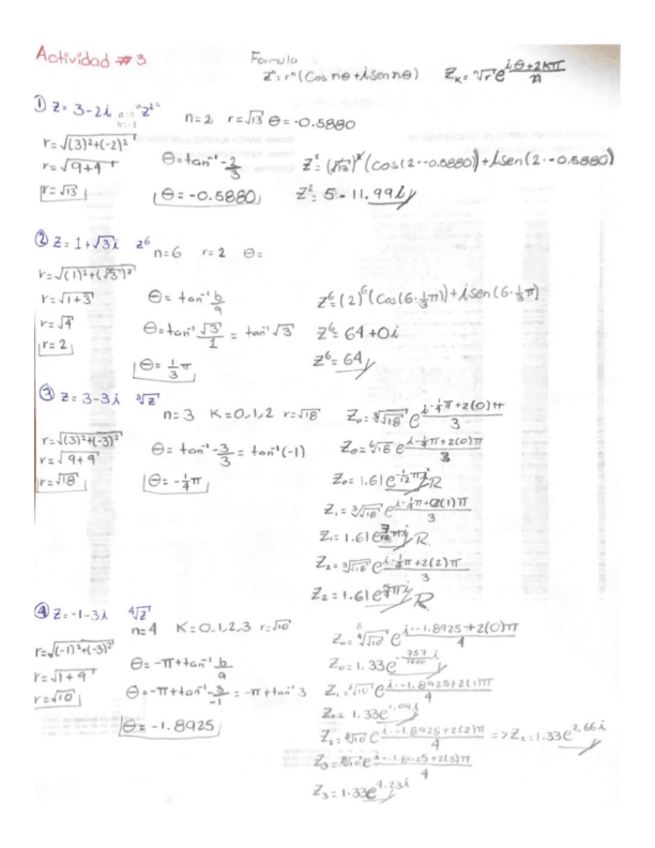 Actividad #3
Formula
Zⁿ = rⁿ (Cos nθ + i Sen nθ)    Z_K = ⁿ√r e^(i (θ+2Kπ)/n)
① Z = 3-2i    Z²
n=2   r=√13   θ = -0.5880
r=√((3)²+(-2)²)
r=√(9+4)
r=√13
θ = tan⁻¹ -2/3
θ = -0.5880
Z² = (√13)² (cos(2·-0.5880) + i sen(2·-0.5880)
Z² = 5 - 11.99i
② Z = 1+√3 i    z⁶
n=6   r=2   θ=
r=√((1)²+(√3)²)
r=√(1+3)
r=√4
r=2
θ = tan⁻¹ b/a
θ = tan⁻¹ √3/1 = tan⁻¹ √3
θ = 1/3 π
Z⁶ = (2)⁶ (Cos(6·1/3π) + i Sen(6·1/3π)
Z⁶ = 64 + 0i
Z⁶ = 64
③ Z = 3-3i    ³√Z
n=3   K=0,1,2   r=√18
r=√((3)²+(-3)²)
r=√(9+9)
r=√18
θ = tan⁻¹ -3/3 = tan⁻¹(-1)
θ = -1/4 π
Z₀ = ³√√18 e^(i (-1/4π+2(0)π)/3)
Z₀ = ⁶√18 e^(i (-1/4π+2(0)π)/3)
Z₀ = 1.61 e^(-1/12 π i) R
Z₁ = ³√√18 e^(i (-1/4π+2(1)π)/3)
Z₁ = 1.61 e^(7/12 π i) R.
Z₂ = ³√√18 e^(i (-1/4π+2(2)π)/3)
Z₂ = 1.61 e^(5/4 π i) R
④ Z = -1-3i    ⁴√Z
n=4   K=0,1,2,3   r=√10
r=√((-1)²+(-3)²)
r=√(1+9)
r=√10
θ = -π + tan⁻¹ b/a
θ = -π + tan⁻¹ -3/-1 = -π + tan⁻¹ 3
θ = -1.8925
Z₀ = ⁸√10 e^(i (-1.8925+2(0)π)/4)
Z₀ = 1.33 e
Z₁ = ⁸√10 e^(i (-1.8925+2(1)π)/4)
Z₁ = 1.33 e^(1.09i)
Z₂ = ⁸√10 e^(i (-1.8925+2(2)π)/4) => Z₂ = 1.33 e^(2.66i)
Z₃ = ⁸√10 e^(i (-1.8925+2(3)π)/4)
Z₃ = 1.33 e^(4.23i)